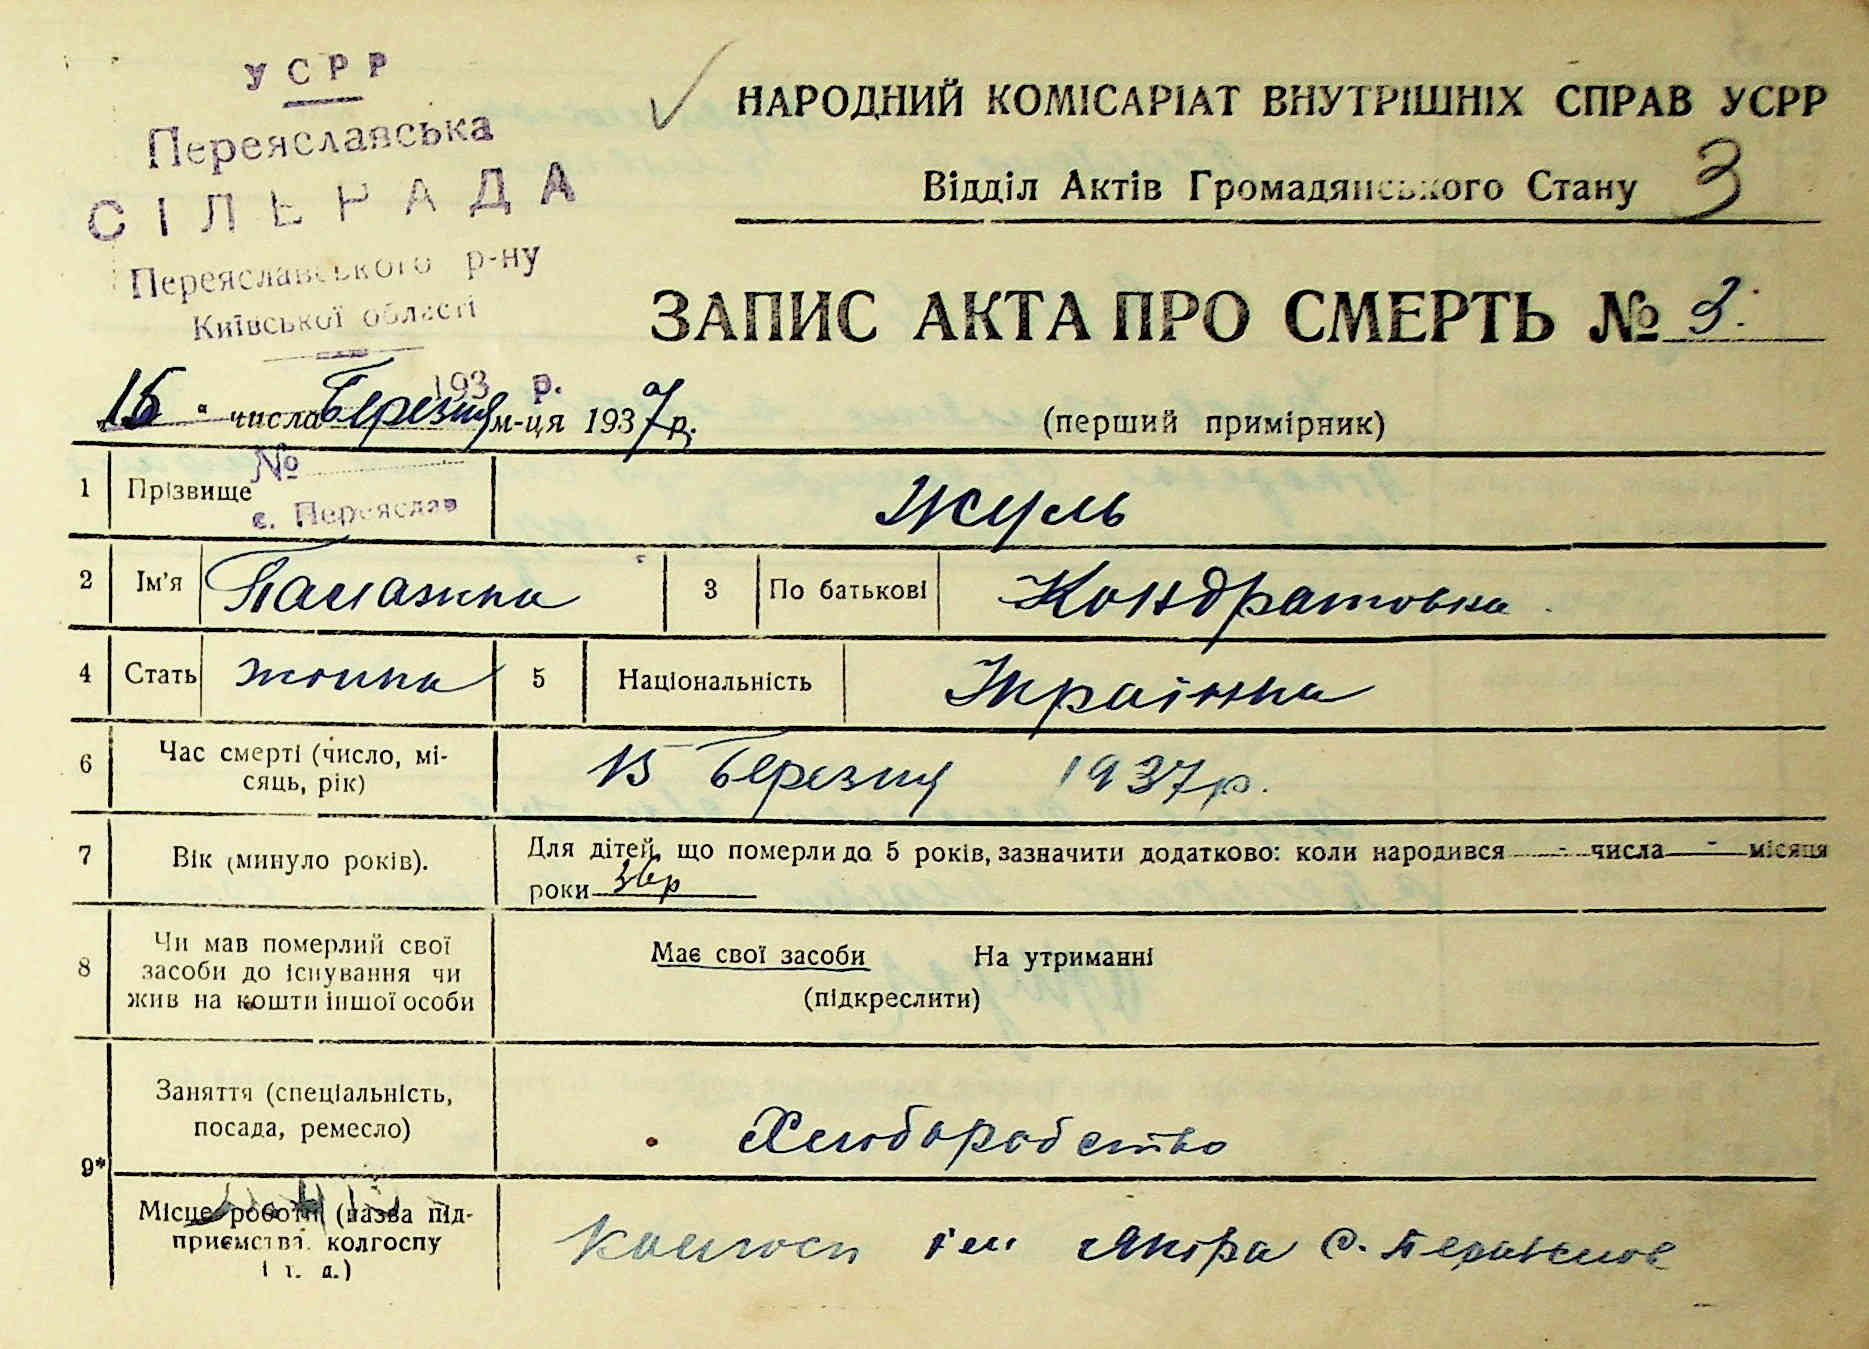 УСРР
Переяславська
СІЛЬРАДА
Переяславського р-ну
Київської області
193 р.
№
с. Переяслав
НАРОДНИЙ КОМІСАРІАТ ВНУТРІШНІХ СПРАВ УСРР
Відділ Актів Громадянського Стану 3
ЗАПИС АКТА ПРО СМЕРТЬ № 3.
числа Березня м-ця 1937 р.
(перший примірник)
1 Прізвище Жуль
2 Ім'я Палажка 3 По батькові Кондратовна
4 Стать жінка 5 Національність Українка
6 Час смерті (число, мі-
сяць, рік) 15 Березня 1937 р.
7 Вік (минуло років). Для дітей, що померли до 5 років, зазначити додатково: коли народився - числа - місяця
роки 36 р
8 Чи мав померлий свої
засоби до існування чи
жив на кошти іншої особи
Має свої засоби На утриманні
(підкреслити)
9* Заняття (спеціальність,
посада, ремесло) Хлюборобство
Місце роботи (назва під-
приємства, колгоспу
і т. д.)
Колгосп ім Якіра с.